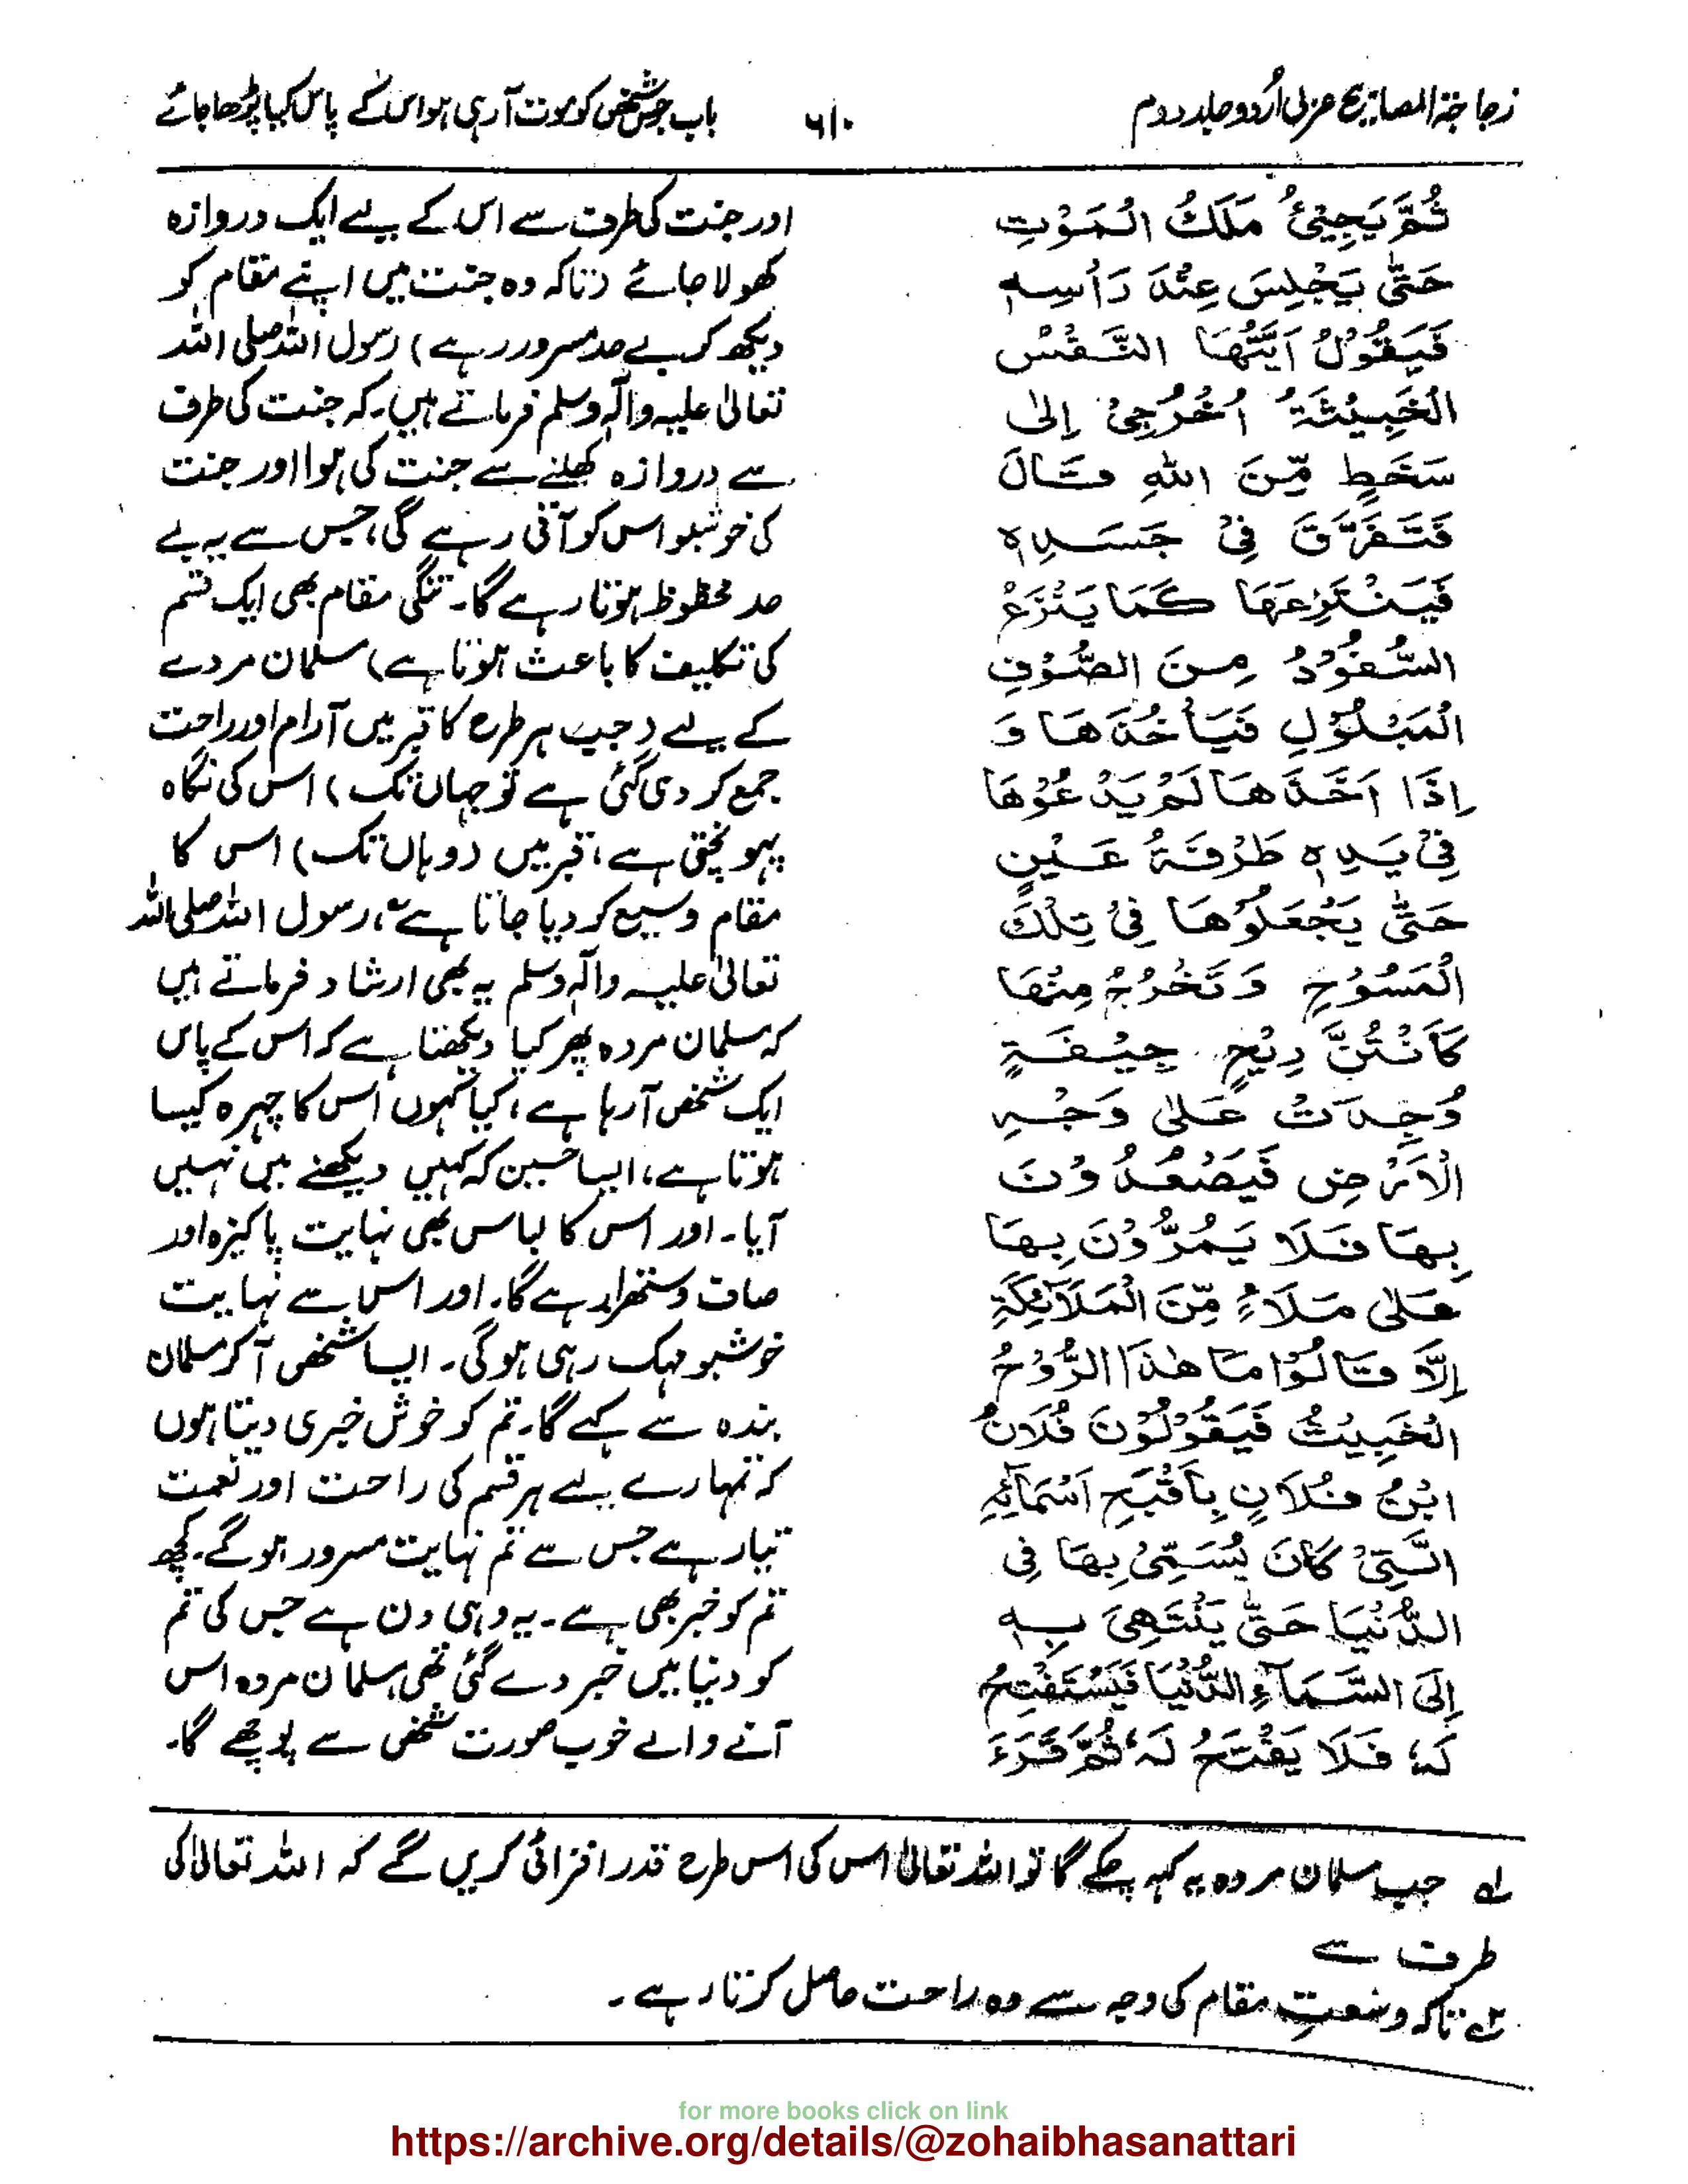 زجاجۃ المصابیح عربی اُردو جلد دوم
۶۱۰
باب جس شخص کو موت آ رہی ہو اس کے پاس کیا پڑھا جائے
ثُمَّ يَجِيْئُ مَلَكُ الْمَوْتِ
حَتّٰى يَجْلِسَ عِنْدَ رَأْسِهٖ
فَيَقُوْلُ اَيَّتُهَا النَّفْسُ
الْخَبِيْثَةُ اُخْرُجِيْ اِلٰى
سَخَطٍ مِّنَ اللهِ قَالَ
فَتَفَرَّقَ فِيْ جَسَدِهٖ
فَيَنْتَزِعُهَا كَمَا يَنْزَعُ
السُّفُوْدُ مِنَ الصُّوْفِ
الْمَبْلُوْلِ فَيَأْخُذَهَا وَ
اِذَا اَخَذَهَا لَمْ يَدْعُوْهَا
فِيْ يَدِهٖ طَرْفَةَ عَيْنٍ
حَتّٰى يَجْعَلُوْهَا فِيْ تِلْكَ
الْمَسُوْحِ وَتَخْرُجُ مِنْهَا
كَاَنْتُنِّ رِيْحٍ جِيْفَةٍ
وُجِدَتْ عَلٰى وَجْهِ
الْاَرْضِ فَيَصْعَدُوْنَ
بِهَا فَلَا يَمُرُّوْنَ بِهَا
عَلٰى مَلَاءٍ مِّنَ الْمَلَآئِكَةِ
اِلَّا قَالُوْا مَا هٰذَا الرُّوْحُ
الْخَبِيْثُ فَيَقُوْلُوْنَ فُلَانُ
ابْنُ فُلَانٍ بِاَقْبَحِ اَسْمَآئِهِ
الَّتِيْ كَانَ يُسَمّٰى بِهَا فِي
الدُّنْيَا حَتّٰى يَنْتَهِيَ بِهٖ
اِلَى السَّمَآءِ الدُّنْيَا فَيَسْتَفْتِحُ
لَهٗ فَلَا يَفْتَحُ لَهٗ ثُمَّ قَرَءَ
اور جنت کی طرف سے اس کے لیے ایک دروازہ
کھولا جائے (تاکہ وہ جنت میں اپنے مقام کو
دیکھ کر بے حد مسرور رہے) رسول اللہ صلی اللہ
تعالیٰ علیہ وآلہ وسلم فرماتے ہیں۔ کہ جنت کی طرف
سے دروازہ کھلنے سے جنت کی ہوا اور جنت
کی خوشبو اس کو آتی رہے گی، جس سے یہ بے
حد محظوظ ہوتا رہے گا۔ تنگی مقام بھی ایک قسم
کی تکلیف کا باعث ہوتا ہے) مسلمان مردے
کے لیے (جب ہر طرح کا قبر میں آرام اور راحت
جمع کر دی گئی ہے تو جہاں تک) اس کی نگاہ
پہونچتی ہے، قبر میں (وہاں تک) اس کا
مقام وسیع کر دیا جاتا ہے ؂۲، رسول اللہ صلی اللہ
تعالیٰ علیہ وآلہ وسلم یہ بھی ارشاد فرماتے ہیں
کہ مسلمان مردہ پھر کیا دیکھتا ہے کہ اس کے پاس
ایک شخص آ رہا ہے، کیا کہوں اس کا چہرہ کیسا
ہوتا ہے، ایسا حسین کہ کہیں دیکھنے میں نہیں
آیا۔ اور اس کا لباس بھی نہایت پاکیزہ اور
صاف و ستھرا رہے گا۔ اور اس سے نہایت
خوشبو مہک رہی ہو گی۔ ایسا شخص آ کر مسلمان
بندہ سے کہے گا۔ تم کو خوش خبری دیتا ہوں
کہ تمہارے لیے ہر قسم کی راحت اور نعمت
تیار ہے جس سے تم نہایت مسرور ہو گے۔ کچھ
تم کو خبر بھی ہے۔ یہ وہی دن ہے جس کی تم
کو دنیا میں خبر دے گئی تھی، مسلمان مردہ اس
آنے والے خوب صورت شخص سے پوچھے گا۔
؂۱ جب مسلمان مردہ یہ کہہ چکے گا تو اللہ تعالیٰ اس کی اس طرح قدر افزائی کریں گے کہ اللہ تعالیٰ کی
طرف سے
؂۲ تاکہ وسعتِ مقام کی وجہ سے وہ راحت حاصل کرتا رہے۔
for more books click on link
https://archive.org/details/@zohaibhasanattari